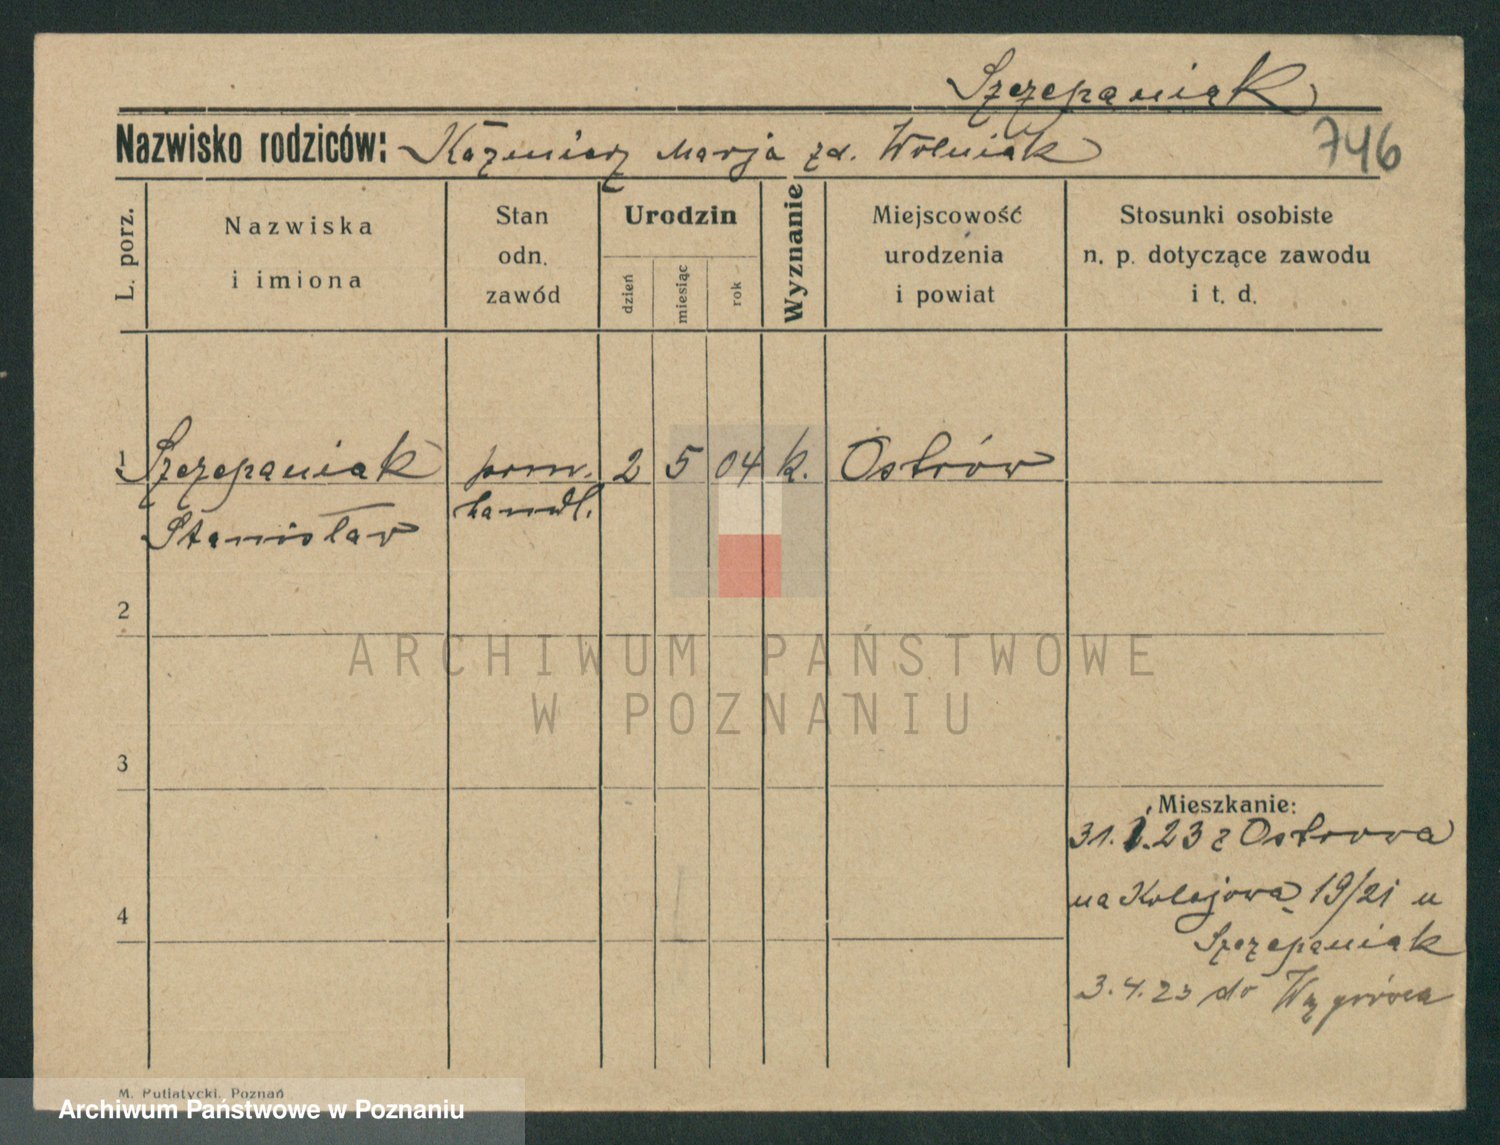 Szczepaniak
Nazwisko rodziców: Kazmierz Marja zd. Wolniak
746
L. porz.
Nazwiska
i imiona
Stan
odn.
zawód
Urodzin
dzień
miesiąc
rok
Wyznanie
Miejscowość
urodzenia
i powiat
Stosunki osobiste
n. p. dotyczące zawodu
i t. d.
1 Szczepaniak pom. 2 5 04 k. Ostrów
Stanisław handl.
2
3
4
Mieszkanie:
31.1.23 z Ostrowa
na Kolejową 19/21 u
Szczepaniak
3.4.23 do
M. Putiatycki, Poznań
ARCHIWUM PAŃSTWOWE
W POZNANIU
Archiwum Państwowe w Poznaniu